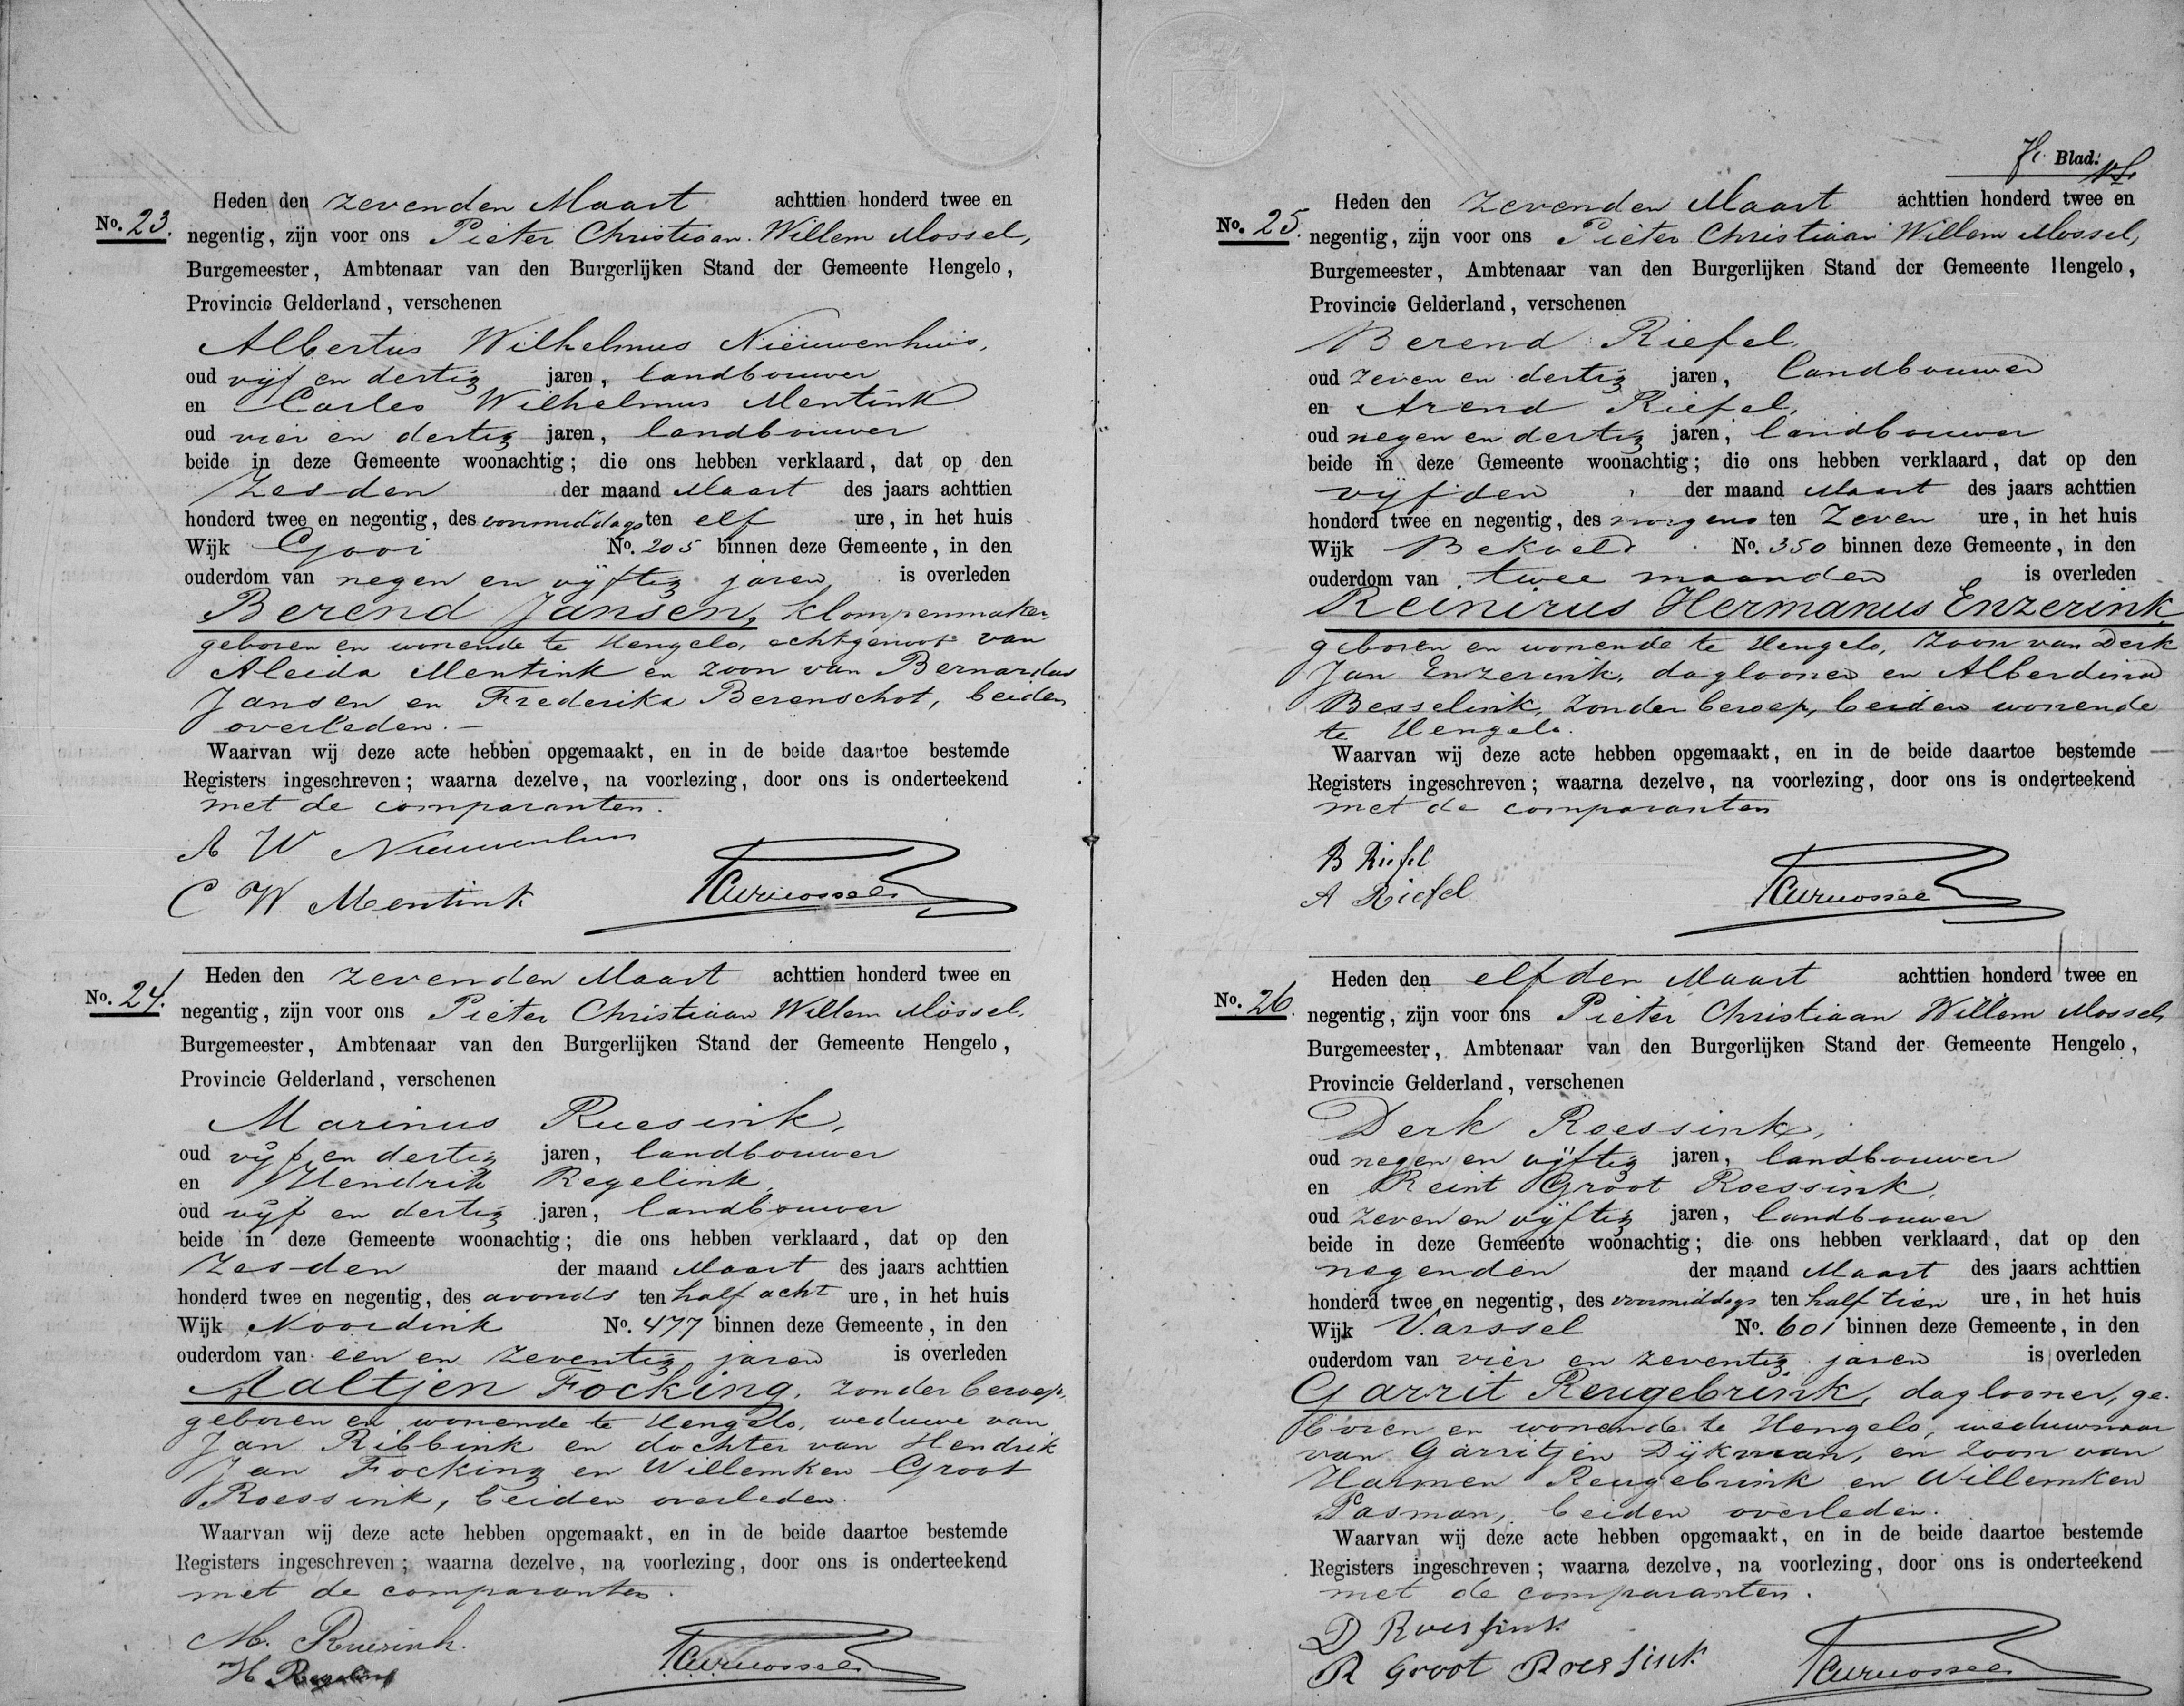 No. 23.
Heden den zevenden Maart achttien honderd twee en
negentig, zijn voor ons Pieter Christiaan Willem Mossel,
Burgemeester, Ambtenaar van den Burgerlijken Stand der Gemeente Hengelo,
Provincie Gelderland, verschenen
Albertus Wilhelmus Nieuwenhuis,
oud vijf en dertig jaren, landbouwer
en Carles Wilhelmus Mentink
oud vier en dertig jaren, landbouwer
beide in deze Gemeente woonachtig; die ons hebben verklaard, dat op den
Zesden der maand Maart des jaars achttien
honderd twee en negentig, des voormiddags ten elf ure, in het huis
Wijk Gooi No. 205 binnen deze Gemeente, in den
ouderdom van negen en vijftig jaren is overleden
Berend Jansen, klompenmaker,
geboren en wonende te Hengelo, echtgenoot van
Aleida Mentink en zoon van Bernardus
Jansen en Frederika Berenschot, beiden
overleden.–
Waarvan wij deze acte hebben opgemaakt, en in de beide daartoe bestemde
Registers ingeschreven; waarna dezelve, na voorlezing, door ons is onderteekend
met de comparanten.
A W Nieuwenhuis
C W Mentink
PCWMossel
No. 24.
Heden den zevenden Maart achttien honderd twee en
negentig, zijn voor ons Pieter Christiaan Willem Mossel,
Burgemeester, Ambtenaar van den Burgerlijken Stand der Gemeente Hengelo,
Provincie Gelderland, verschenen
Marinus Ruesink,
oud vijf en dertig jaren, landbouwer
en Hendrik Regelink,
oud vijf en dertig jaren, landbouwer
beide in deze Gemeente woonachtig; die ons hebben verklaard, dat op den
Zesden der maand Maart des jaars achttien
honderd twee en negentig, des avonds ten half acht ure, in het huis
Wijk Noordink No. 477 binnen deze Gemeente, in den
ouderdom van een en zeventig jaren is overleden
Aaltjen Focking, zonder beroep,
geboren en wonende te Hengelo, weduwe van
Jan Ribbink en dochter van Hendrik
Jan Focking en Willemken Groot
Roessink, beiden overleden.
Waarvan wij deze acte hebben opgemaakt, en in de beide daartoe bestemde
Registers ingeschreven; waarna dezelve, na voorlezing, door ons is onderteekend
met de comparanten.
M. Ruesink.
H Regelink
PCWMossel
Blad.
No. 25.
Heden den zevenden Maart achttien honderd twee en
negentig, zijn voor ons Pieter Christiaan Willem Mossel,
Burgemeester, Ambtenaar van den Burgerlijken Stand der Gemeente Hengelo,
Provincie Gelderland, verschenen
Berend Riefel,
oud zeven en dertig jaren, landbouwer
en Arend Riefel,
oud negen en dertig jaren, landbouwer
beide in deze Gemeente woonachtig; die ons hebben verklaard, dat op den
vijfden der maand Maart des jaars achttien
honderd twee en negentig, des morgens ten zeven ure, in het huis
Wijk Bekveld No. 350 binnen deze Gemeente, in den
ouderdom van twee maanden is overleden
Reinirus Hermanus Enzerink,
geboren en wonende te Hengelo, zoon van Derk
Jan Enzerink, daglooner en Alberdina
Besselink, zonder beroep, beiden wonende
te Hengelo.
Waarvan wij deze acte hebben opgemaakt, en in de beide daartoe bestemde
Registers ingeschreven; waarna dezelve, na voorlezing, door ons is onderteekend
met de comparanten
B Riefel
A Riefel
PCWMossel
No. 26.
Heden den elfden Maart achttien honderd twee en
negentig, zijn voor ons Pieter Christiaan Willem Mossel,
Burgemeester, Ambtenaar van den Burgerlijken Stand der Gemeente Hengelo,
Provincie Gelderland, verschenen
Derk Roessink,
oud negen en vijftig jaren, landbouwer
en Reint Groot Roessink,
oud zeven en vijftig jaren, landbouwer
beide in deze Gemeente woonachtig; die ons hebben verklaard, dat op den
negenden der maand Maart des jaars achttien
honderd twee en negentig, des voormiddags ten half tien ure, in het huis
Wijk Varssel No. 601 binnen deze Gemeente, in den
ouderdom van vier en zeventig jaren is overleden
Garrit Reugebrink, daglooner, ge-
boren en wonende te Hengelo, weduwnaar
van Garritjen Dijkman, en zoon van
Harmen Reugebrink en Willemken
Pasman, beiden overleden.
Waarvan wij deze acte hebben opgemaakt, en in de beide daartoe bestemde
Registers ingeschreven; waarna dezelve, na voorlezing, door ons is onderteekend
met de comparanten.
D Roessink
R Groot Roessink
PCWMossel